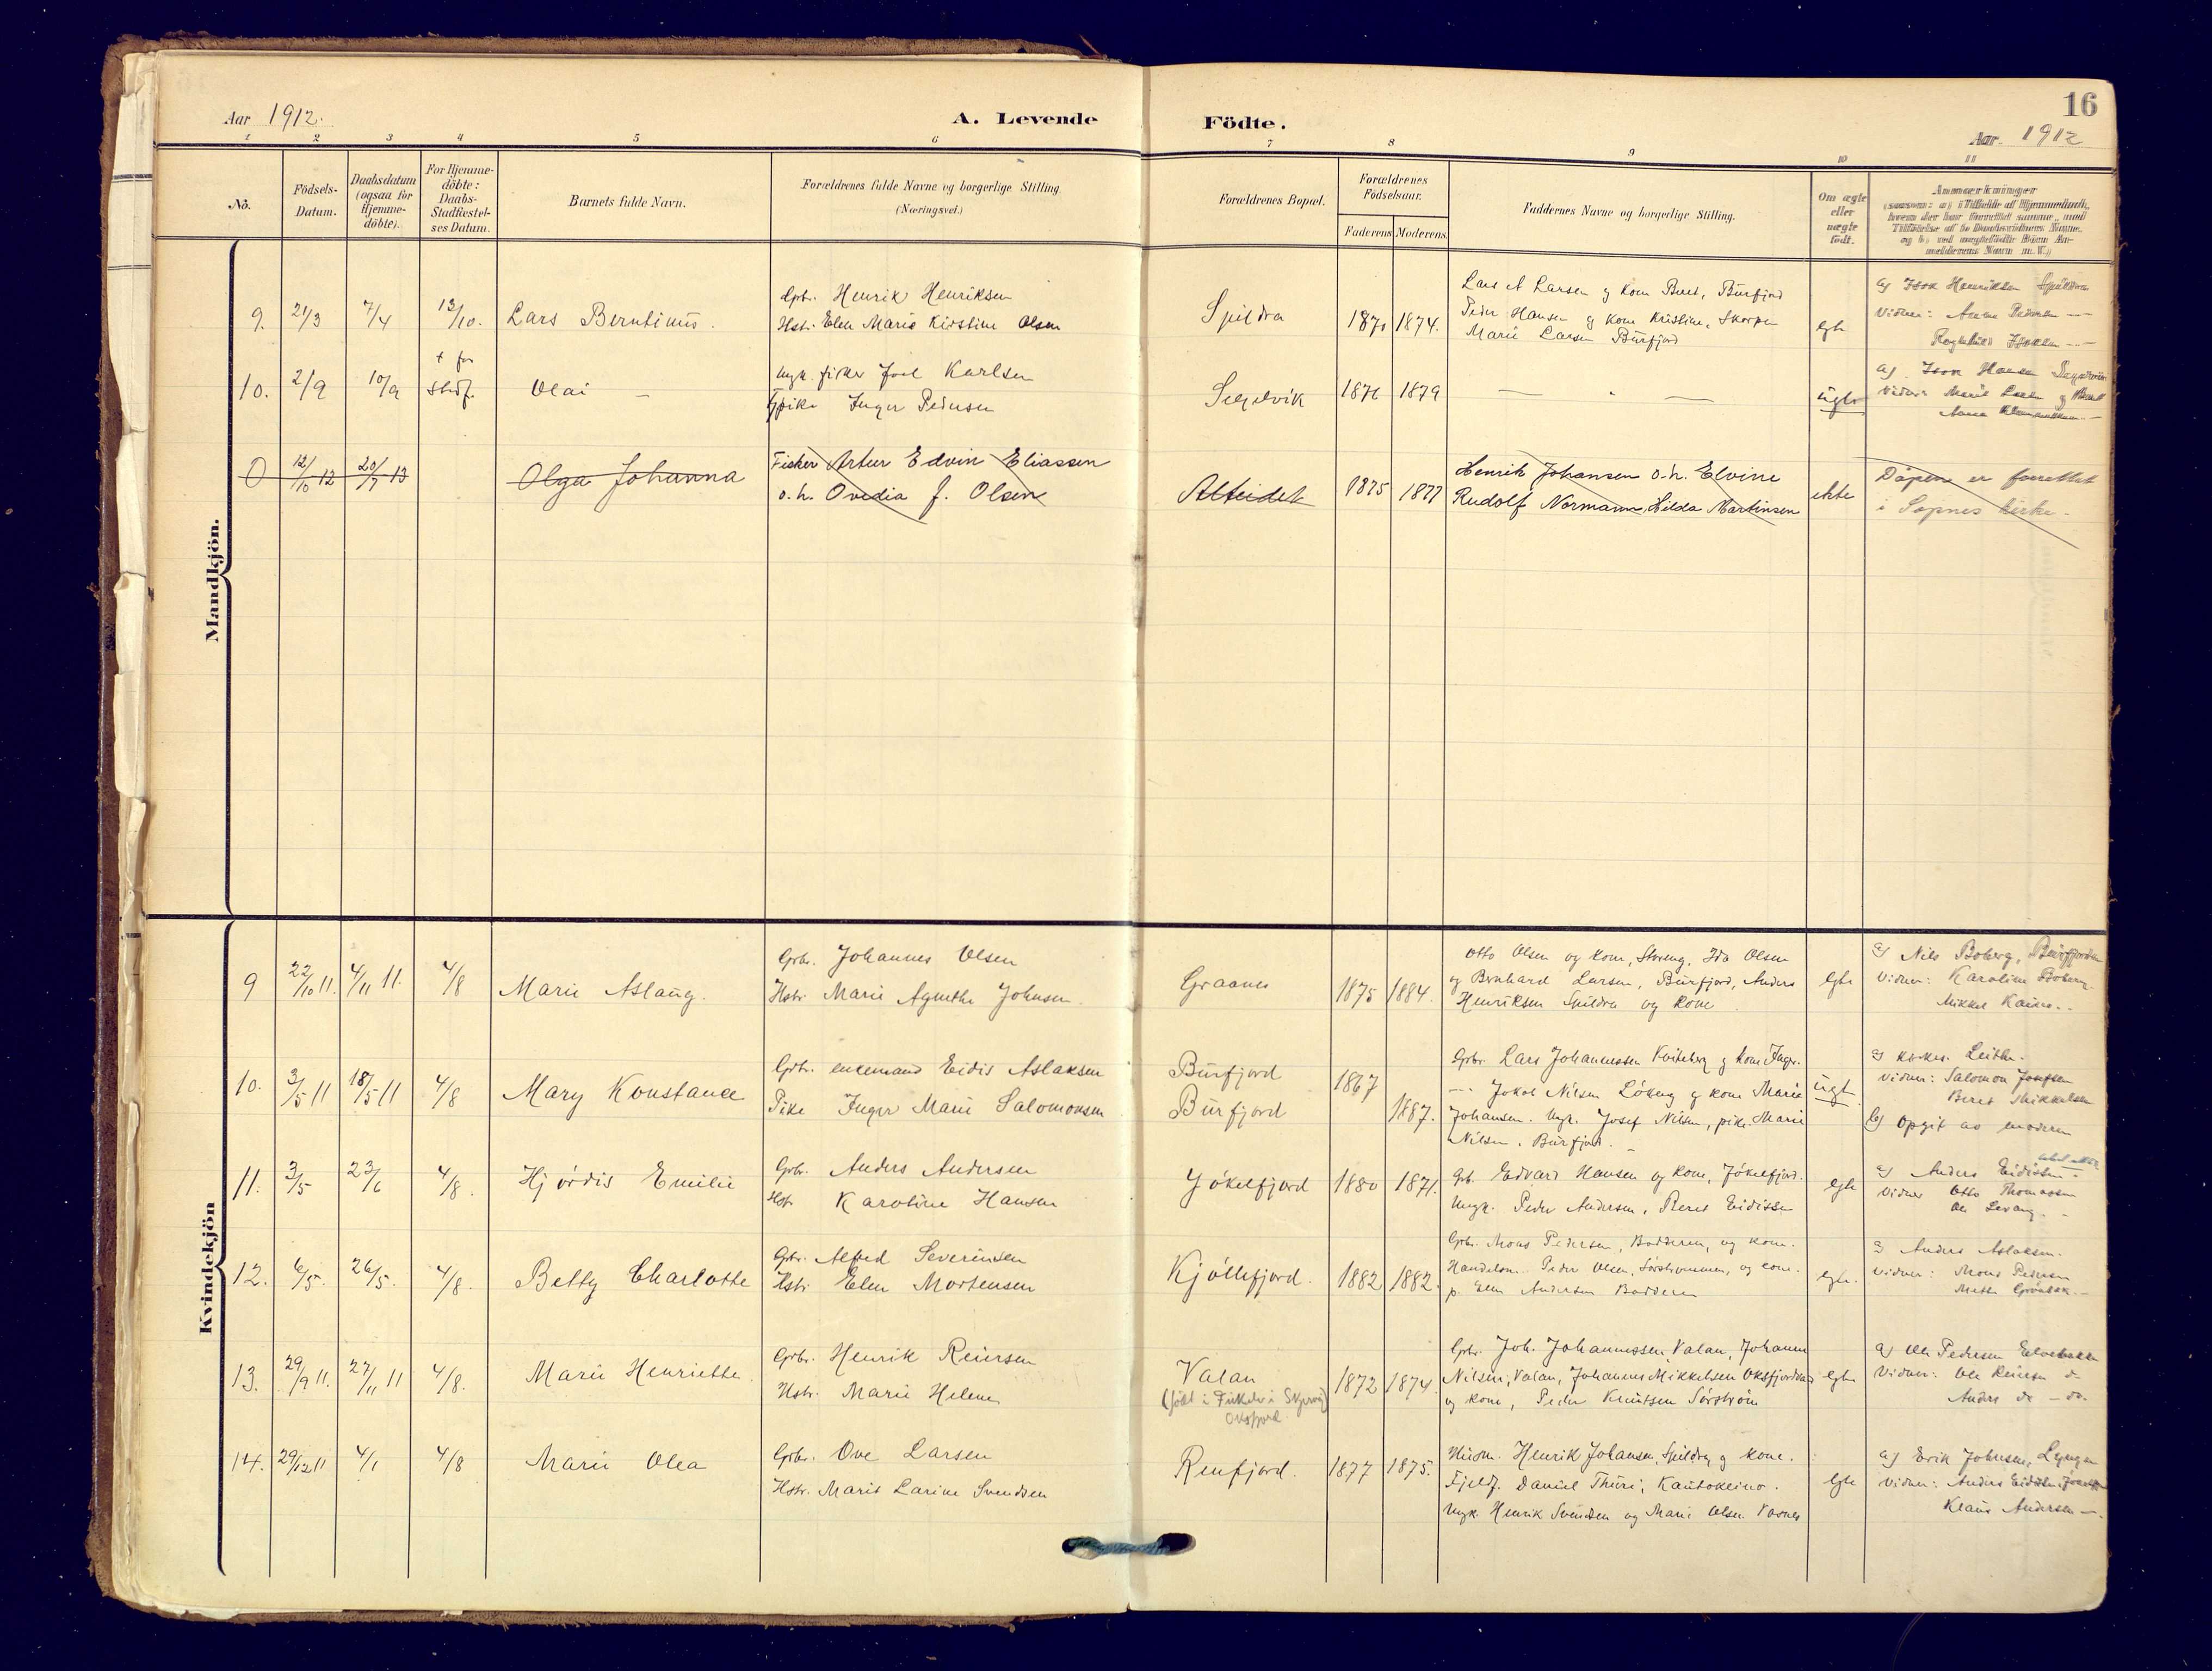 16
Aar 1912.
A. Levende
Födte.
Aar. 1912
1 2 3 4 5 6 7 8 9 10 11
Nô.
Födsels-
Datum.
Daabsdatum
(ogsaa for
Hjemme-
döbte).
For Hjemme-
döbte:
Daabs-
Stadfæstel-
ses Datum.
Barnets fulde Navn.
Forældrenes fulde Navne og borgerlige Stilling.
(Næringsvei.)
Forældrenes Bopæl.
Forældrenes
Födselsaar.
Faderens Moderens
Faddernes Navne og borgerlige Stilling.
Om ægte
eller
uægte
födt.
Anmærkninger
Mandkjön.
9. 21/3 7/4 13/10. Lars Berntinus.
Gbr. Henrik Henriksen
Hstr. Elen Marie Kirstine Olsen
Spildra 1871 1874.
Lars A Larsen g kone Beret, Burfjord
Peder Hansen g kone Kristine, Skorpen
Marie Larsen Burfjord
egte
a) Isak Henriksen Spildra
Vidner: Anna Pedersen —
10. 2/9 10/9 + før stadf. Olai —
Ungk. fisker Joel Karlsen
Pike Inger Pedersen
Segelvik 1876 1879 — " —
ugte
a) Isak Hansen
O 12/10 12 20/7 13 Olga Johanna
Fisker Artur Edvin Eliassen
o. h. Ovedia J. Olsen
Alteidet 1875 1877
Henrik Johansen o.h. Elvine
Rudolf Normann, Hilda Martinsen
ekte
Dåpen er forrettet
i Sopnes kirke.
Kvindekjön
9 22/10 11. 4/11 11. 4/8 Marie Aslaug.
Grbr. Johannes Olsen
Hstr. Marie Agnethe Johnsen.
Graanes 1875 1884.
Otto Olsen og kone, Storeng, Ida Olsen
og Bernhard Larsen, Burfjord, Anders
Henriksen Spildra og kone.
egte
a) Nils Boberg, Burfjorden
Vidner: Karoline Boberg.
Mikkel Kaino..
10. 3/5 11 18/5 11 4/8 Mary Konstance
Grbr. enkemand Eidis Aslaksen
Pike Inger Marie Salomonsen
Burfjord 1867
Burfjord 1887.
Grbr. Lars Johannessen Kviteberg g kone Inger.
— Jakob Nilsen Løkeng g kone Marie
Johansen. Ungk. Josef Nilsen, pike Marie
Nilsen. Burfjord.
ugt
Vidner: Salomon Josefsen
Beret Mikkelsen
b) Opgit av moderen
11. 3/5 23/6 4/8. Hjördis Emilie
Grbr. Anders Andersen
Hstr. Karoline Hansen
Jökelfjord 1880 1871.
Gbr. Edvard Hansen og kone, Jökelfjord.
Ungk. Peder Andersen, Beret Eidissen
egte
a) Anders Eidissen.
Vidner Otto Thomassen
12. 6/5. 26/5. 4/8. Betty Charlotte
Grbr. Alfred Severinsen
Hstr. Elen Mortensen
Kjöllefjord. 1882 1882.
Grbr. Mons Pedersen, Badderen, og kone.
Handelsm. Peder Olsen, Sørstrømmen, og kone.
p. Elen Andersen Badderen
egte.
a) Anders Aslaksen.
Vidner: Mons Pedersen
13. 29/9 11. 27/11 11 4/8. Marie Henriette.
Grbr. Henrik Reiersen
Hstr. Marie Helene
Valan 1872 1874.
Oksfjord.
Grbr. Joh. Johannessen, Valan, Johanne
Nilsen, Valan, Johannes Mikkelsen Oksfjorden
og kone, Peder Knutsen Sørstrøm
egte
a) Ole Pedersen Elvebakken
Vidner: Ole Reiersen d—
Anders do — do.
14. 29/12 11 4/1 4/8 Marie Olea
Grbr. Ove Larsen
Hstr. Marit Larine Svendsen
Reinfjord. 1877 1875.
Husm. Henrik Johansen, Spildra, g kone.
Fjeldf. Daniel Thuri, Kautokeino.
Ungk. Henrik Svendsen og Marie Olsen Vasnes
egte
a) Erik Johnsen, Lyngen
Vidner: Anders Eidissen,
Klaus Andersen —.